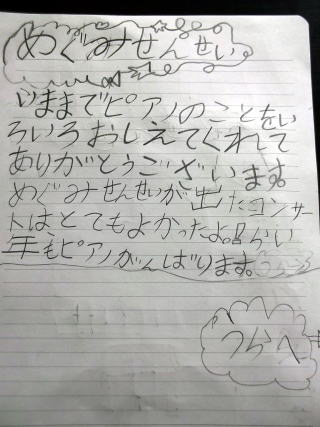 めぐみせんせい
いままでピアノのことをい
ろいろおしえてくれて
ありがとうございます
めぐみせんせいが出たコンサー
トはとてもよかったよ。らい
年もピアノがんばります。
うらへ